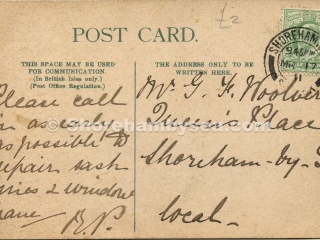 £2
POST CARD.
THIS SPACE MAY BE USED
FOR COMMUNICATION.
(In British Isles only.)
(Post Office Regulation.)
THE ADDRESS ONLY TO BE
WRITTEN HERE.
SHOREHAM
MR 17
11
Please call
in as early
as possible to
repair sash
lines & window
pane
B.P.
Mr. G. F. Woolver
Queens Place
Shoreham-by-S
local
© shorehambysea.com